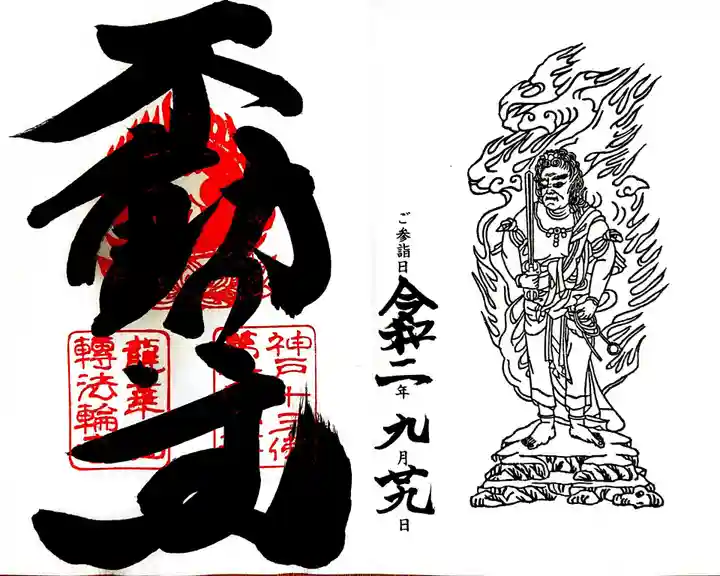 不動明王
神戸十三佛
龍華山
轉法輪寺
ご参詣日 令和二年九月廿九日